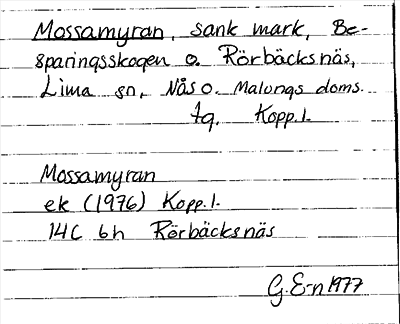 Mossamyran, sank mark, Be-
sparingsskogen o. Rörbäcksnäs,
Lima sn, Nås o. Malungs doms.
tg. Kopp. l.
Mossamyran
ek (1976) Kopp. l.
14C 6h Rörbäcksnäs
G. E-n 1977